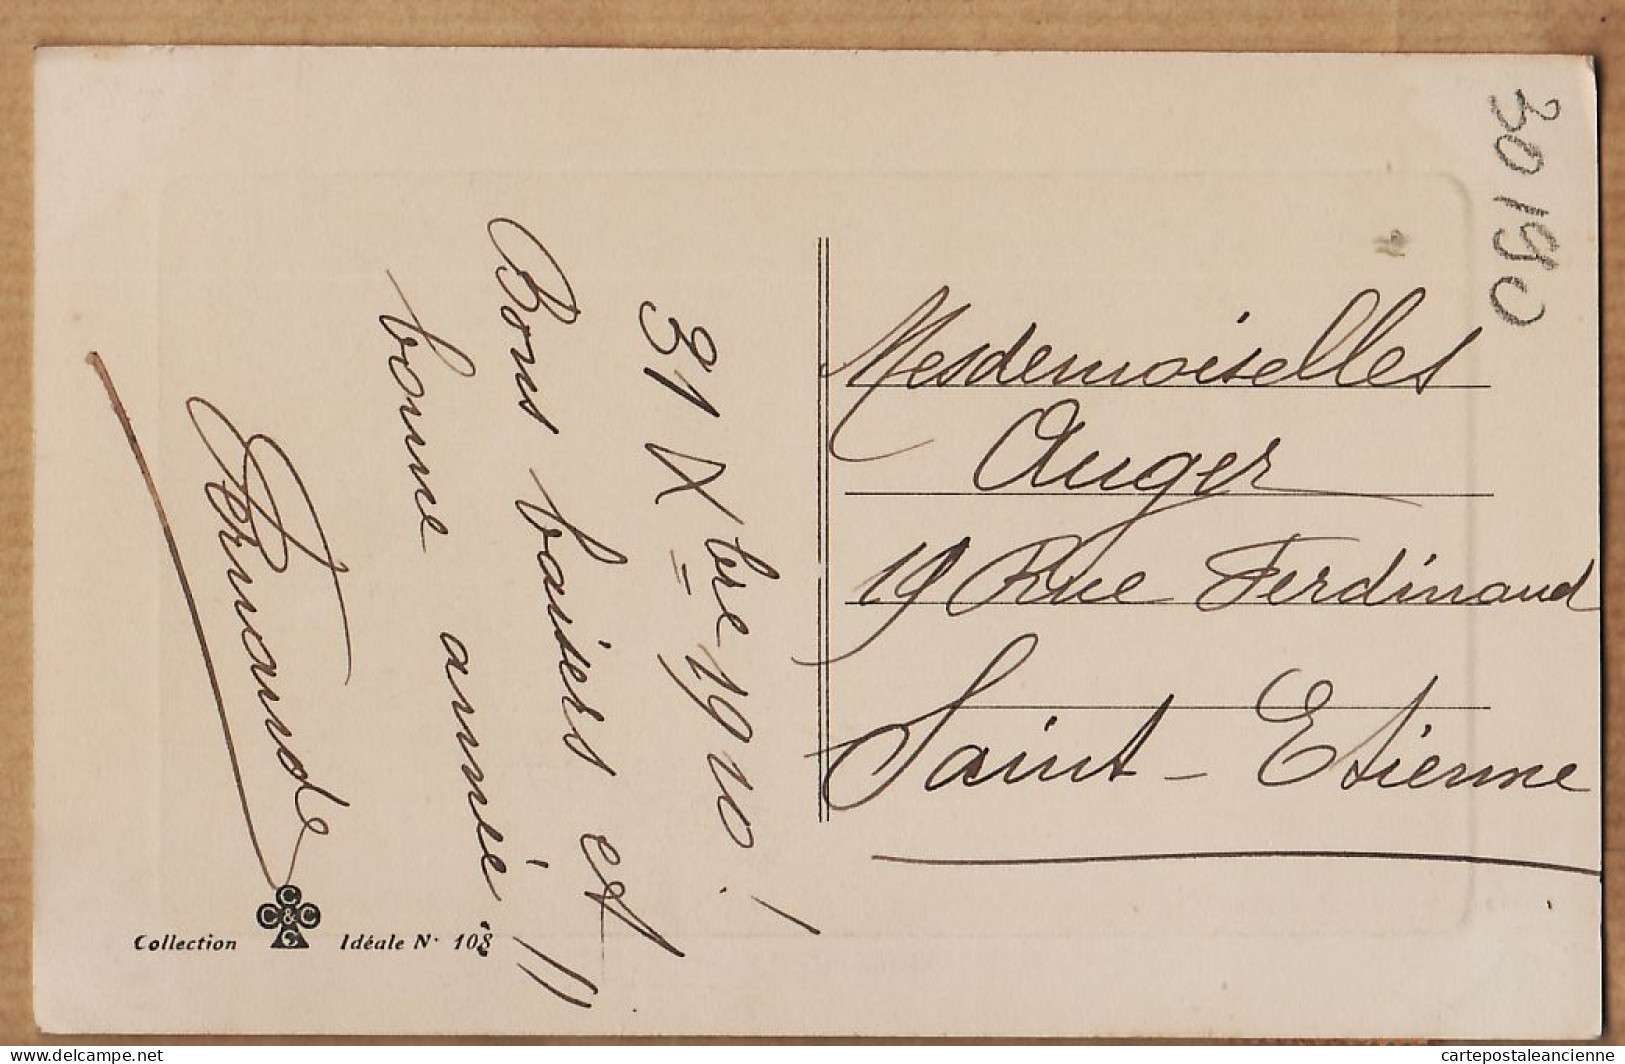 31 Xbre = 1910!
Bons baisers et
bonne année!!
Fernande
Mesdemoiselles
Auger
19 Rue Ferdinand
Saint-Etienne
30190
Collection C C & C C Idéale No 108
delcampe.net
cartepostaleancienne